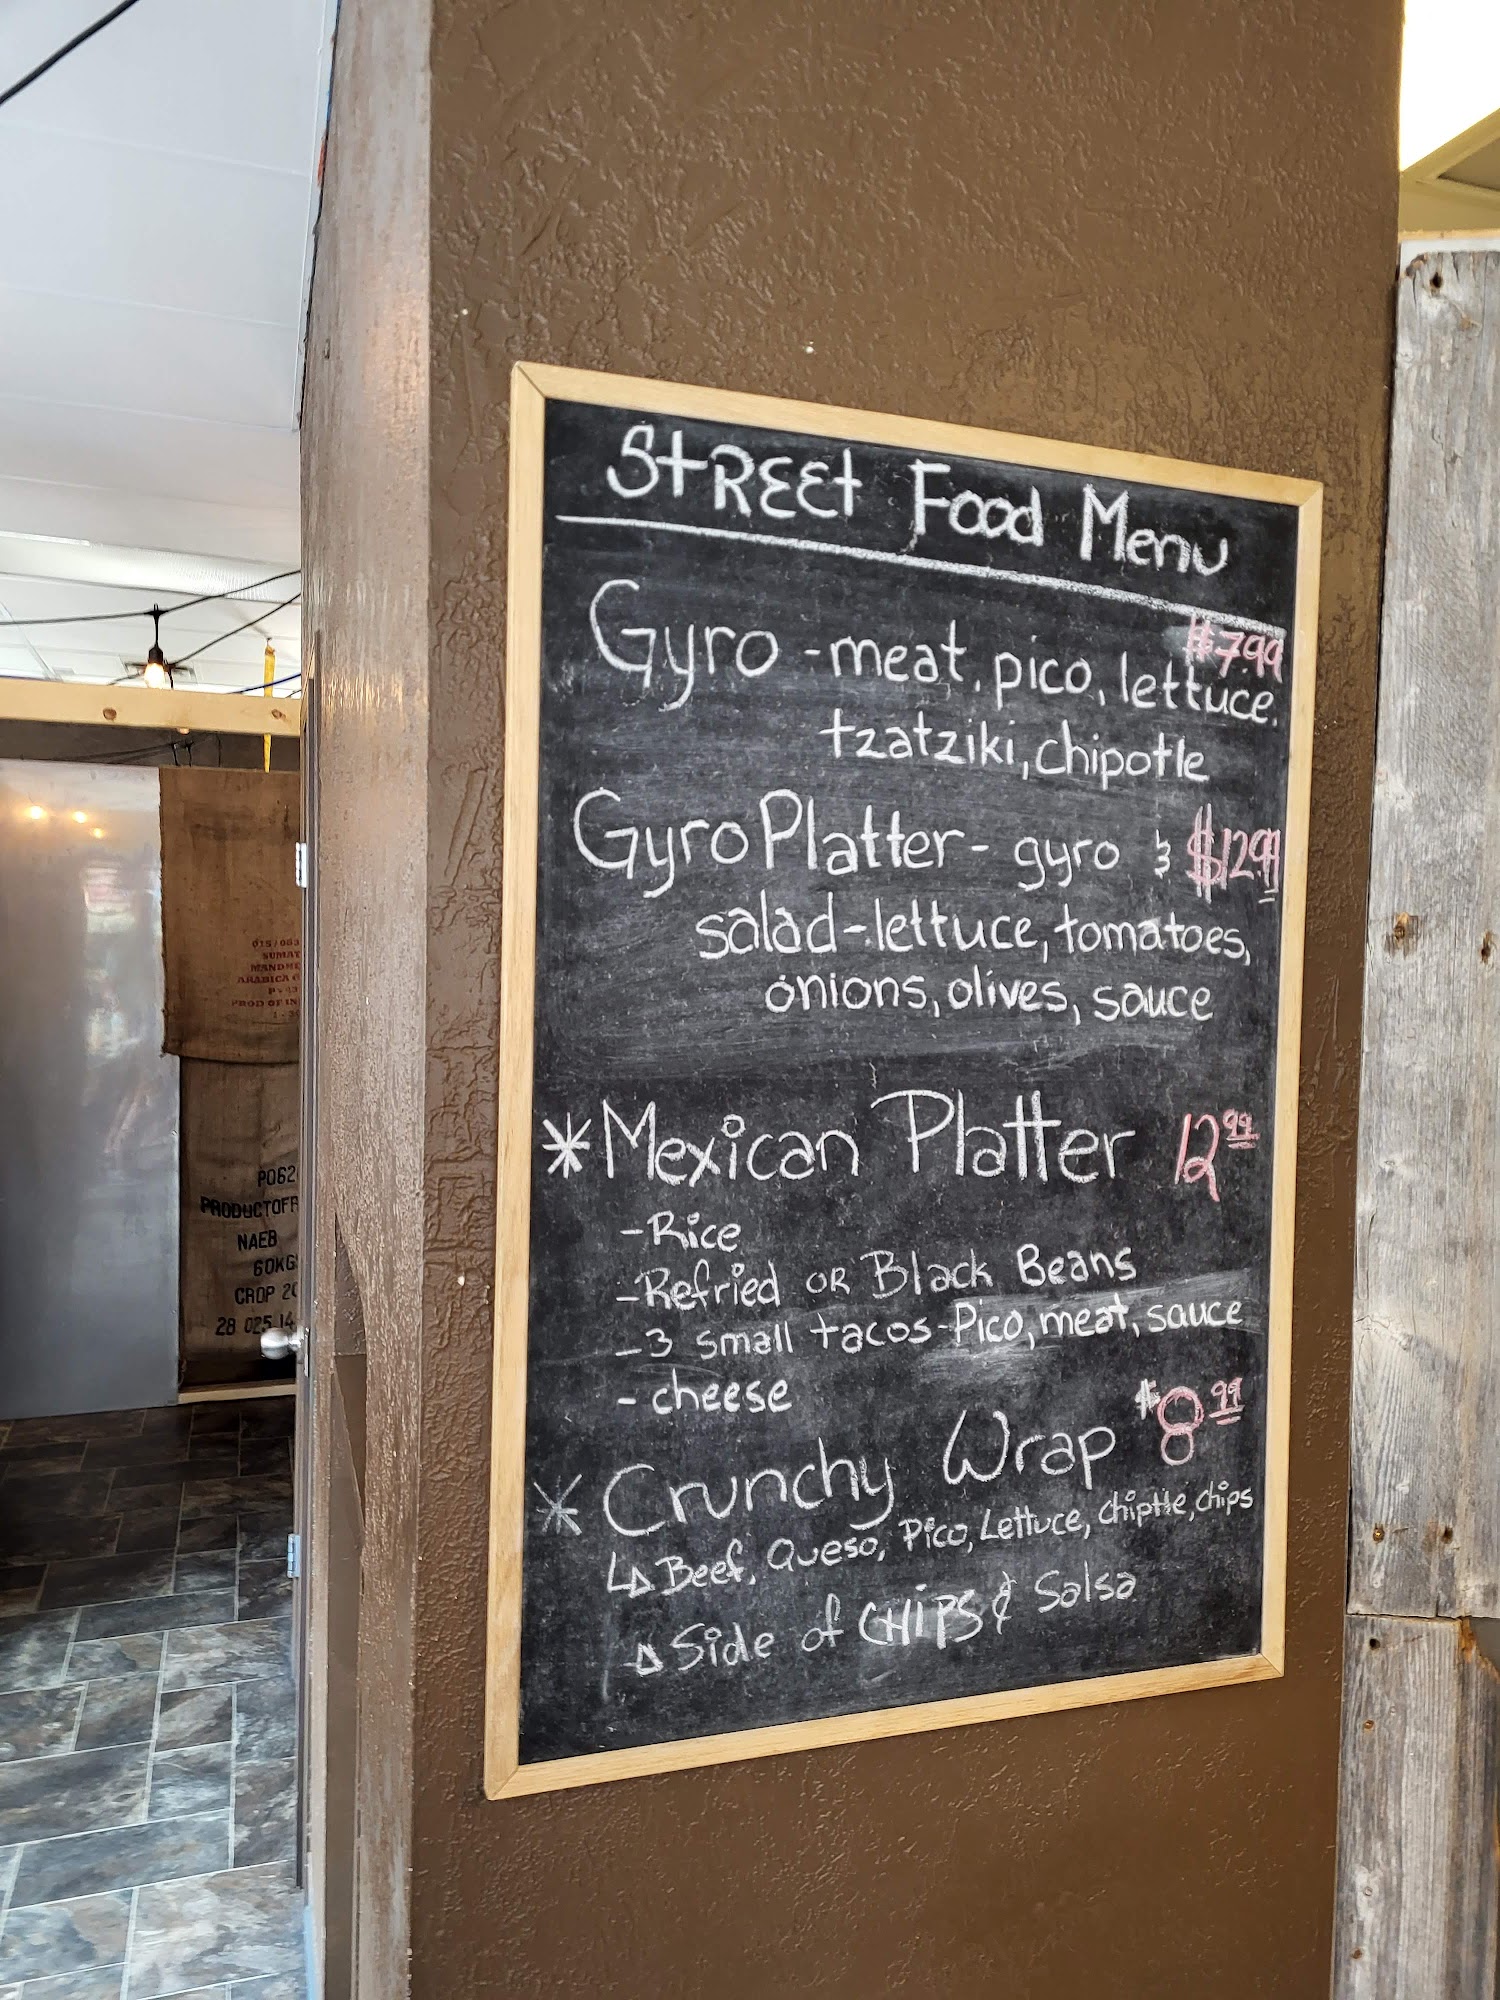 StREEt Food Menu
$7.99
Gyro - meat, pico, lettuce.
tzatziki, chipotle
Gyro Platter - gyro & $12.99
salad - lettuce, tomatoes,
onions, olives, sauce
* Mexican Platter 12.99
- Rice
- Refried OR Black Beans
- 3 small tacos - Pico, meat, sauce
- cheese
* Crunchy Wrap $8.99
Beef, Queso, Pico, Lettuce, chiptle, chips
Side of CHIPS & Salsa
015/003
SUMAT
MANDHE
ARABICA G
PROD OF IN
P062
PRODUCTOFR
NAEB
60KGS
CROP 20
28 025 14